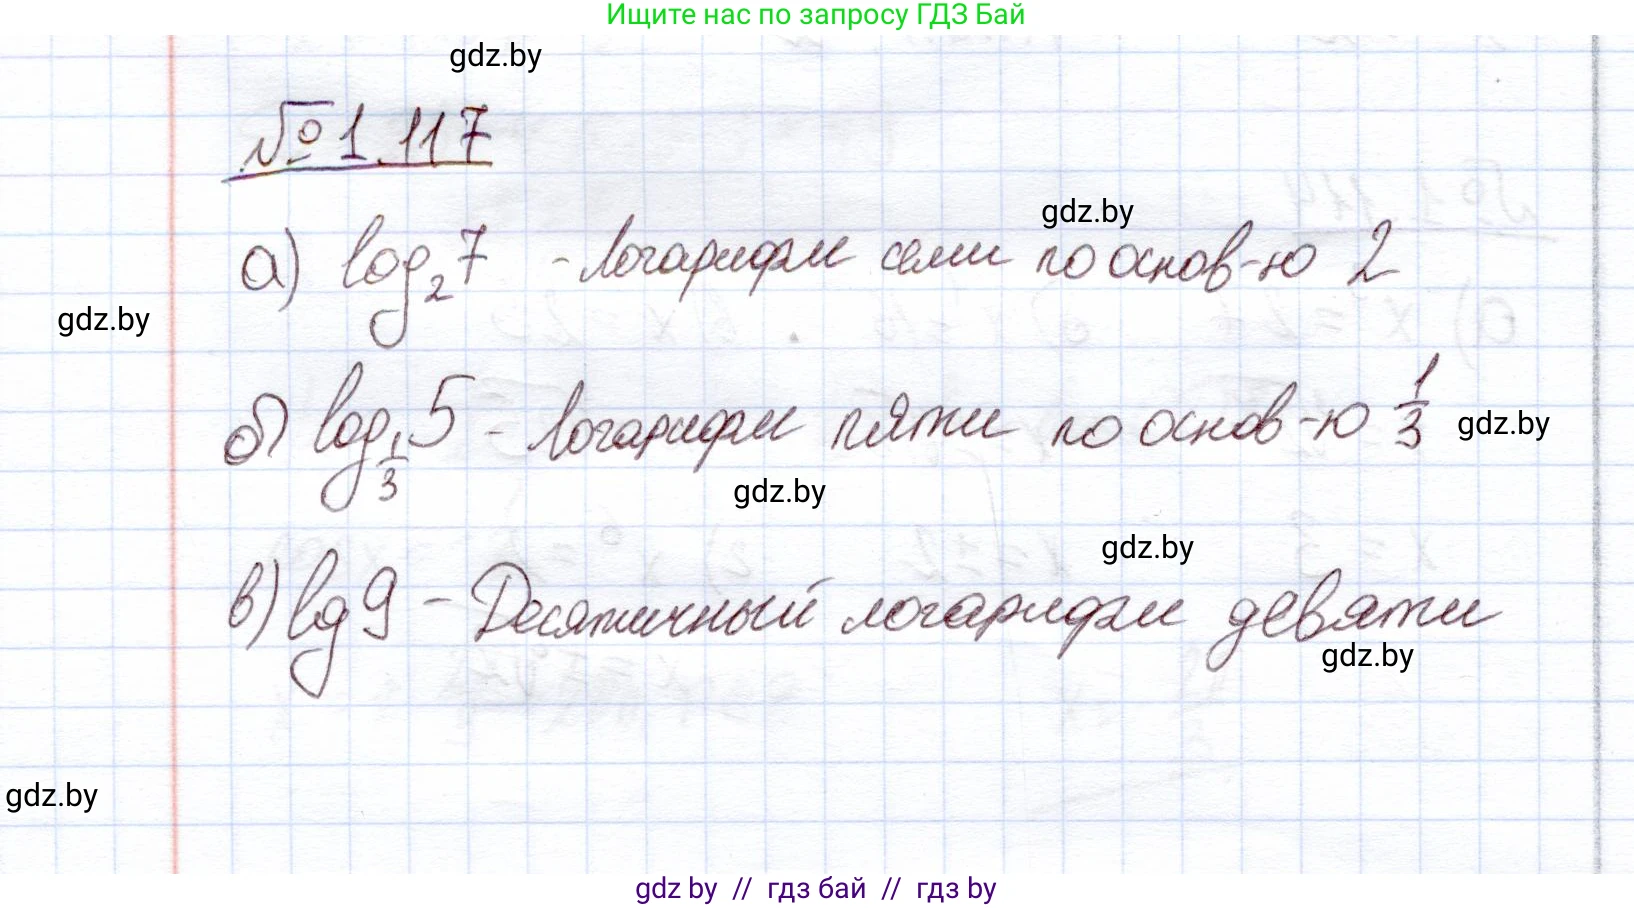 Ищите нас по запросу ГДЗ Бай
gdz.by
№ 1.117
gdz.by
а) log₂7 - Логарифм семи по основ-ю 2
gdz.by
б) log_{1/3}5 - Логарифм пяти по основ-ю 1/3
gdz.by
gdz.by
gdz.by
в) lg 9 - Десятичный логарифм девяти
gdz.by
gdz.by
gdz by // гдз бай // гдз by